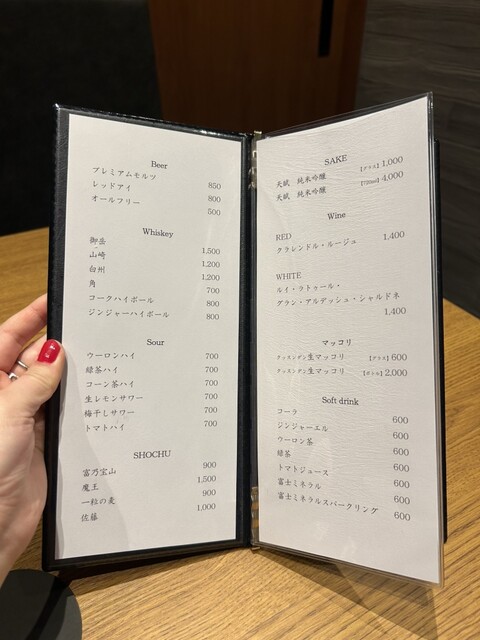 Beer
プレミアムモルツ 850
レッドアイ 800
オールフリー 500
Whiskey
御岳 1,500
山崎 1,200
白州 1,200
角 700
コークハイボール 800
ジンジャーハイボール 800
Sour
ウーロンハイ 700
緑茶ハイ 700
コーン茶ハイ 700
生レモンサワー 700
梅干しサワー 700
トマトハイ 700
SHOCHU
富乃宝山 900
魔王 1,500
一粒の麦 900
佐藤 1,000
SAKE
天賦 純米吟醸 【グラス】 1,000
天賦 純米吟醸 【720ml】 4,000
Wine
RED
クラレンドル・ルージュ 1,400
WHITE
ルイ・ラトゥール・
グラン・アルデッシュ・シャルドネ
1,400
マッコリ
生マッコリ 【グラス】 600
生マッコリ 【ボトル】 2,000
Soft drink
コーラ 600
ジンジャーエール 600
ウーロン茶 600
緑茶 600
トマトジュース 600
富士ミネラル 600
富士ミネラルスパークリング 600